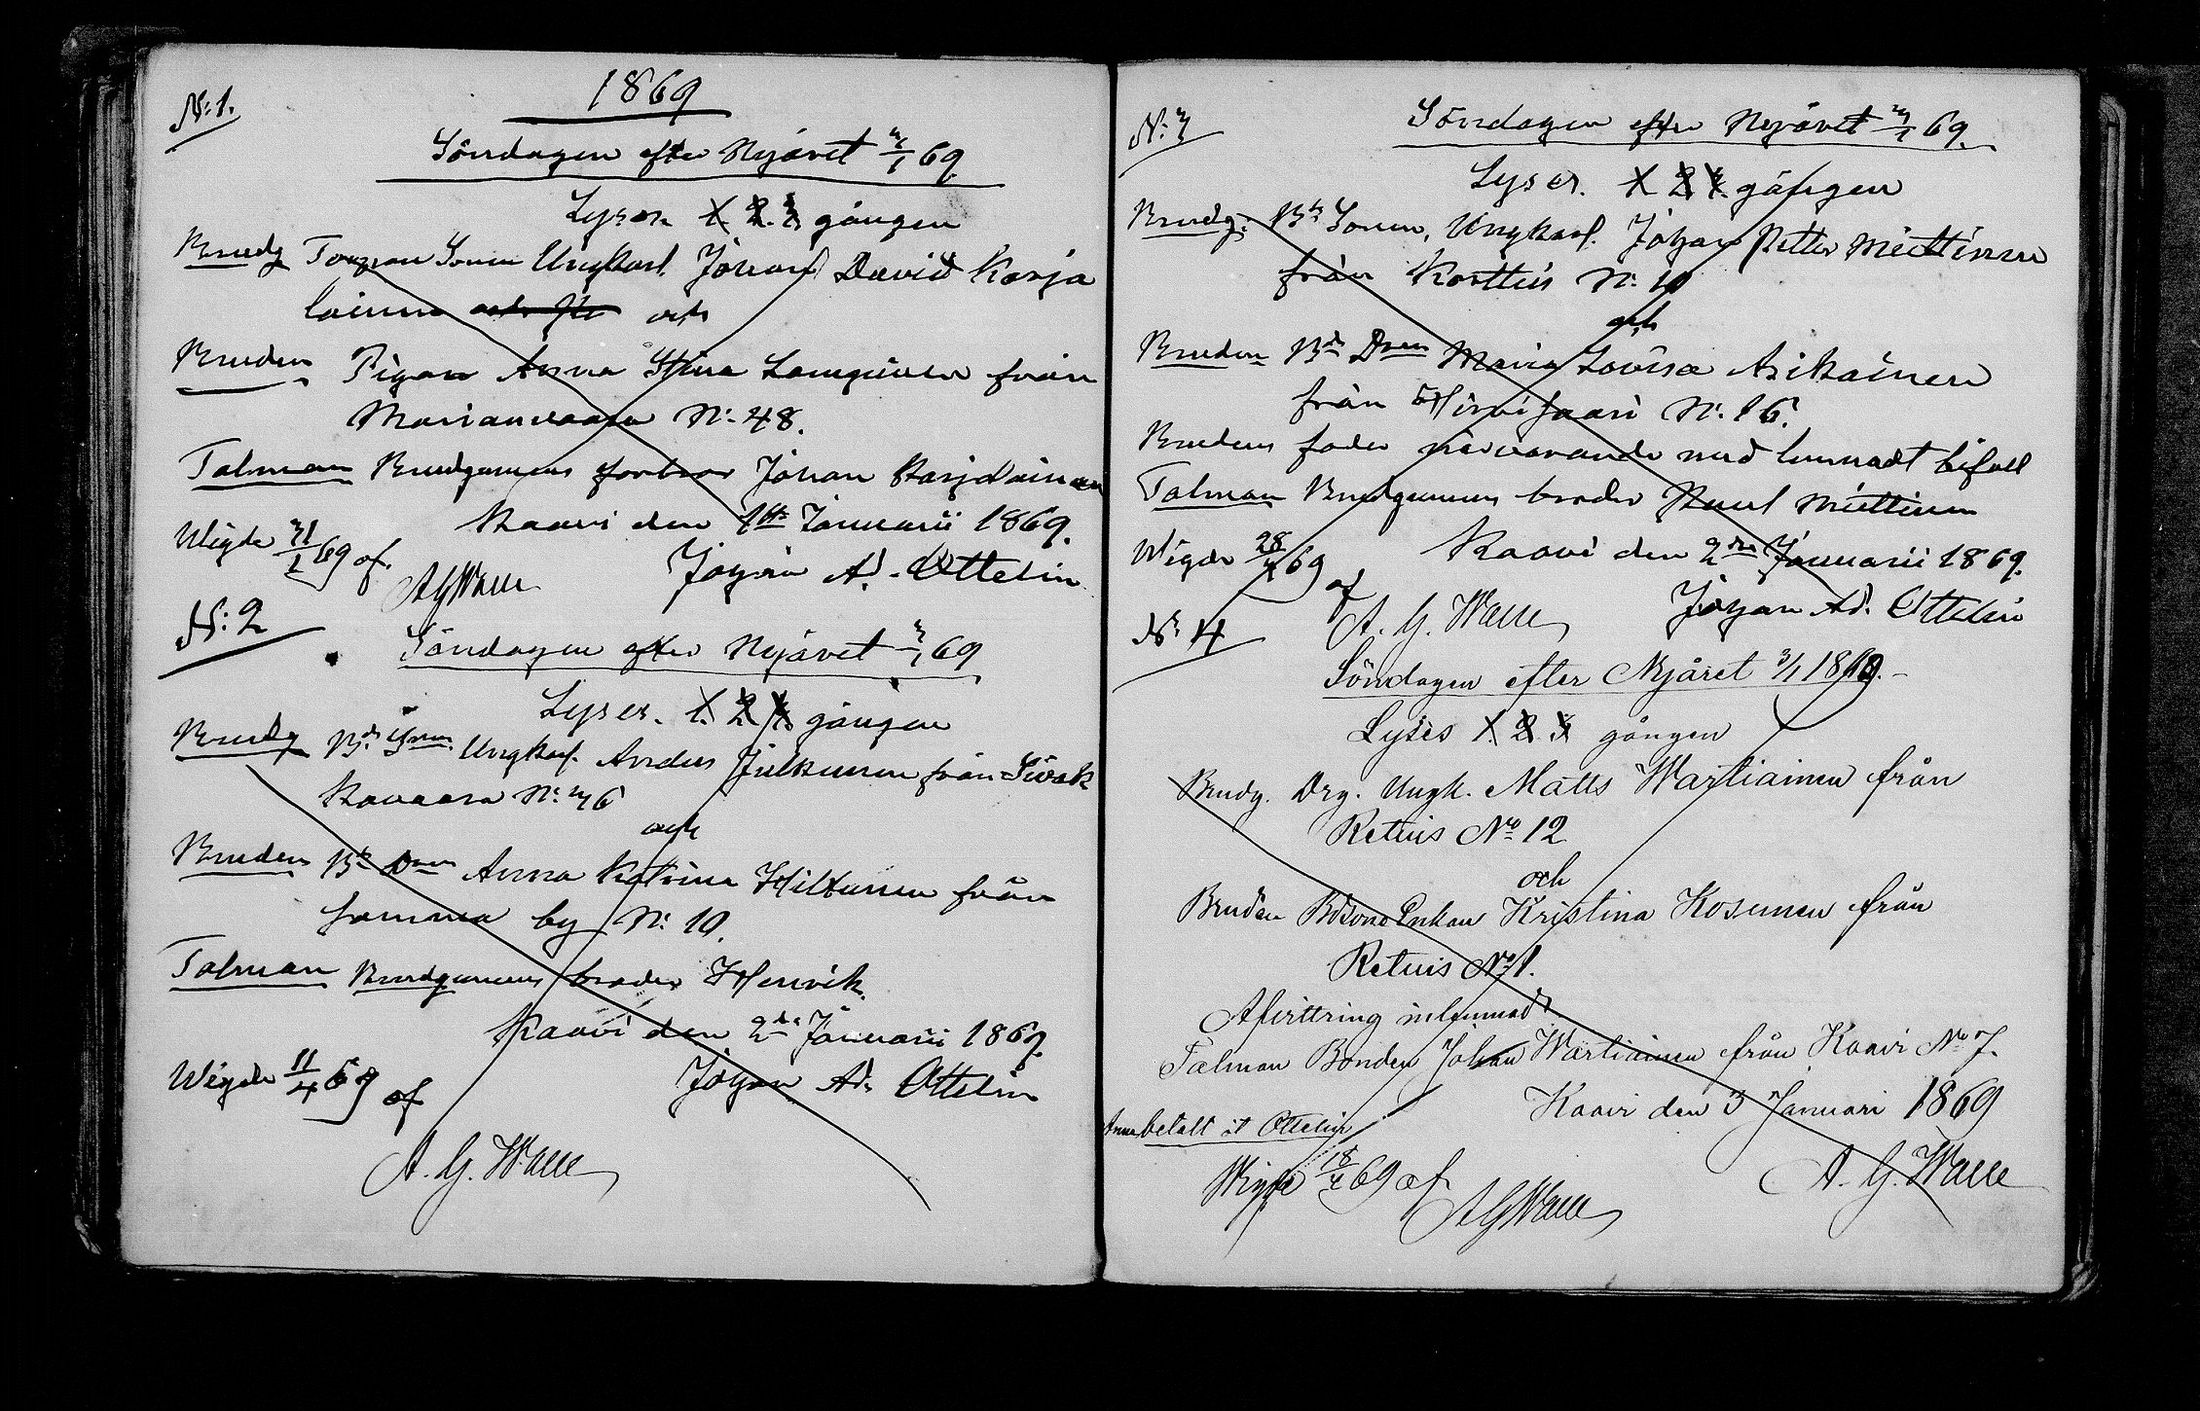 1869
N:1.
Söndagen efter Nyåret 3/1 69.
Lyses 1. 2. 3. gången
Brudg Torpare Sonen Ungkarl. Johan David Karja
lainen och
Bruden Pigan Anna Stina Lamginen från
Marianvaara N: 48.
Talman Brudgumens farbror Johan Karjalainen
Kaavi den 1sta Januarii 1869.
Wigde 31/1 69 af
AGWalle
Johan Ad. Ottelin
N:2
Söndagen efter Nyåret 3/1 69
Lyses. 1. 2. 3. gången
Brudg Bd. Snen. Ungkarl. Anders Julkunen från Sivak
kavaara N: 36
och
Bruden Bd Dren Anna Katrina Hiltunen från
samma by N: 10.
Talman Brudgumens broder Henrik.
Kaavi den 2dre Januarii 1869.
Wigde 11/4 69 af
Johan Ad. Ottelin
A. G. Walle
N:3
Söndagen efter Nyåret 3/1 69.
Lyses. 1 2 3. gången
Brudg. Bd Sonen, Ungkarl. Johan Petter Miettinen
från Kortteis N: 10
och
Bruden Bd Dren Maria Lovisa Asikainen
från Hirvisaari N: 16.
Brudens fader närvarande med lemnadt bifall
Talman Brudgumens broder Paul Miettinen
Wigde 28/3 69 af
Kaavi den 2dre Januarii 1869.
A. G. Walle
Johan Ad. Ottelin
No 4
Söndagen efter Nyåret 3/1 1869.-
Lyses 1. 2. 3 gången
Brudg. Drg. Ungk. Matts Wartiainen från
Retuis No 12
och
Bruden Bdsone Enkan Kristina Kosunen från
Retuis No 1.
Afvittring inlemnad
Talman Bonden Johan Wartiainen från Kaavi No 7.
Kaavi den 3 Januari 1869
betalt åt Ottelin
A. G. Walle
Wigde 18/4 69 af
AGWalle